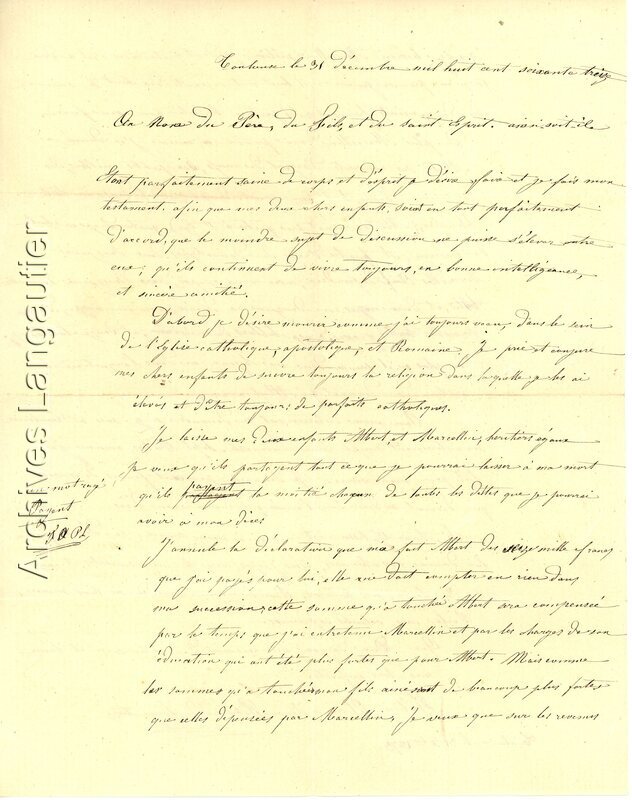 Toulouse le 31 décembre mil huit cent soixante treize
Au Nom du Père, du Fils, et du saint Esprit. ainsi soit il.
Etant parfaitement saine de corps et d'esprit je désire faire et je fais mon
testament. afin que mes deux chers enfants, soient en tout parfaitement
d'accord, que le moindre sujet de discussion ne puisse s'élever entre
eux; qu'ils continuent de vivre toujours, en bonne intelligence,
et sincère amitié.
D'abord je désire mourir comme j'ai toujours vécu, dans le sein
de l'Eglise catholique, apostolique, et Romaine. Je prie et conjure
mes chers enfants de suivre toujours la religion dans laquelle je les ai
élevés et d'être toujours de parfaits catholiques.
Je laisse mes deux enfants Albert, et Marcellin, héritiers égaux
Je veux qu'ils partagent tout ce que je pourrai laisser à ma mort
qu'ils payent la moitié chacun de toutes les dettes que je pourrai
avoir à mon décès
un mot rayé
Payent
J'annule la déclaration que m'a fait Albert des seize mille francs
que j'ai payés pour lui, elle ne doit compter en rien dans
ma succession, cette somme qu'a touchée Albert sera compensée
par le temps que j'ai entretenu Marcellin et par les charges de son
éducation qui ont été plus fortes que pour Albert. Mais comme
les sommes qu'a touchées mon fils ainé sont de beaucoup plus fortes
que celles dépensées par Marcellin, Je veux que sur les revenus
Archives Langautier